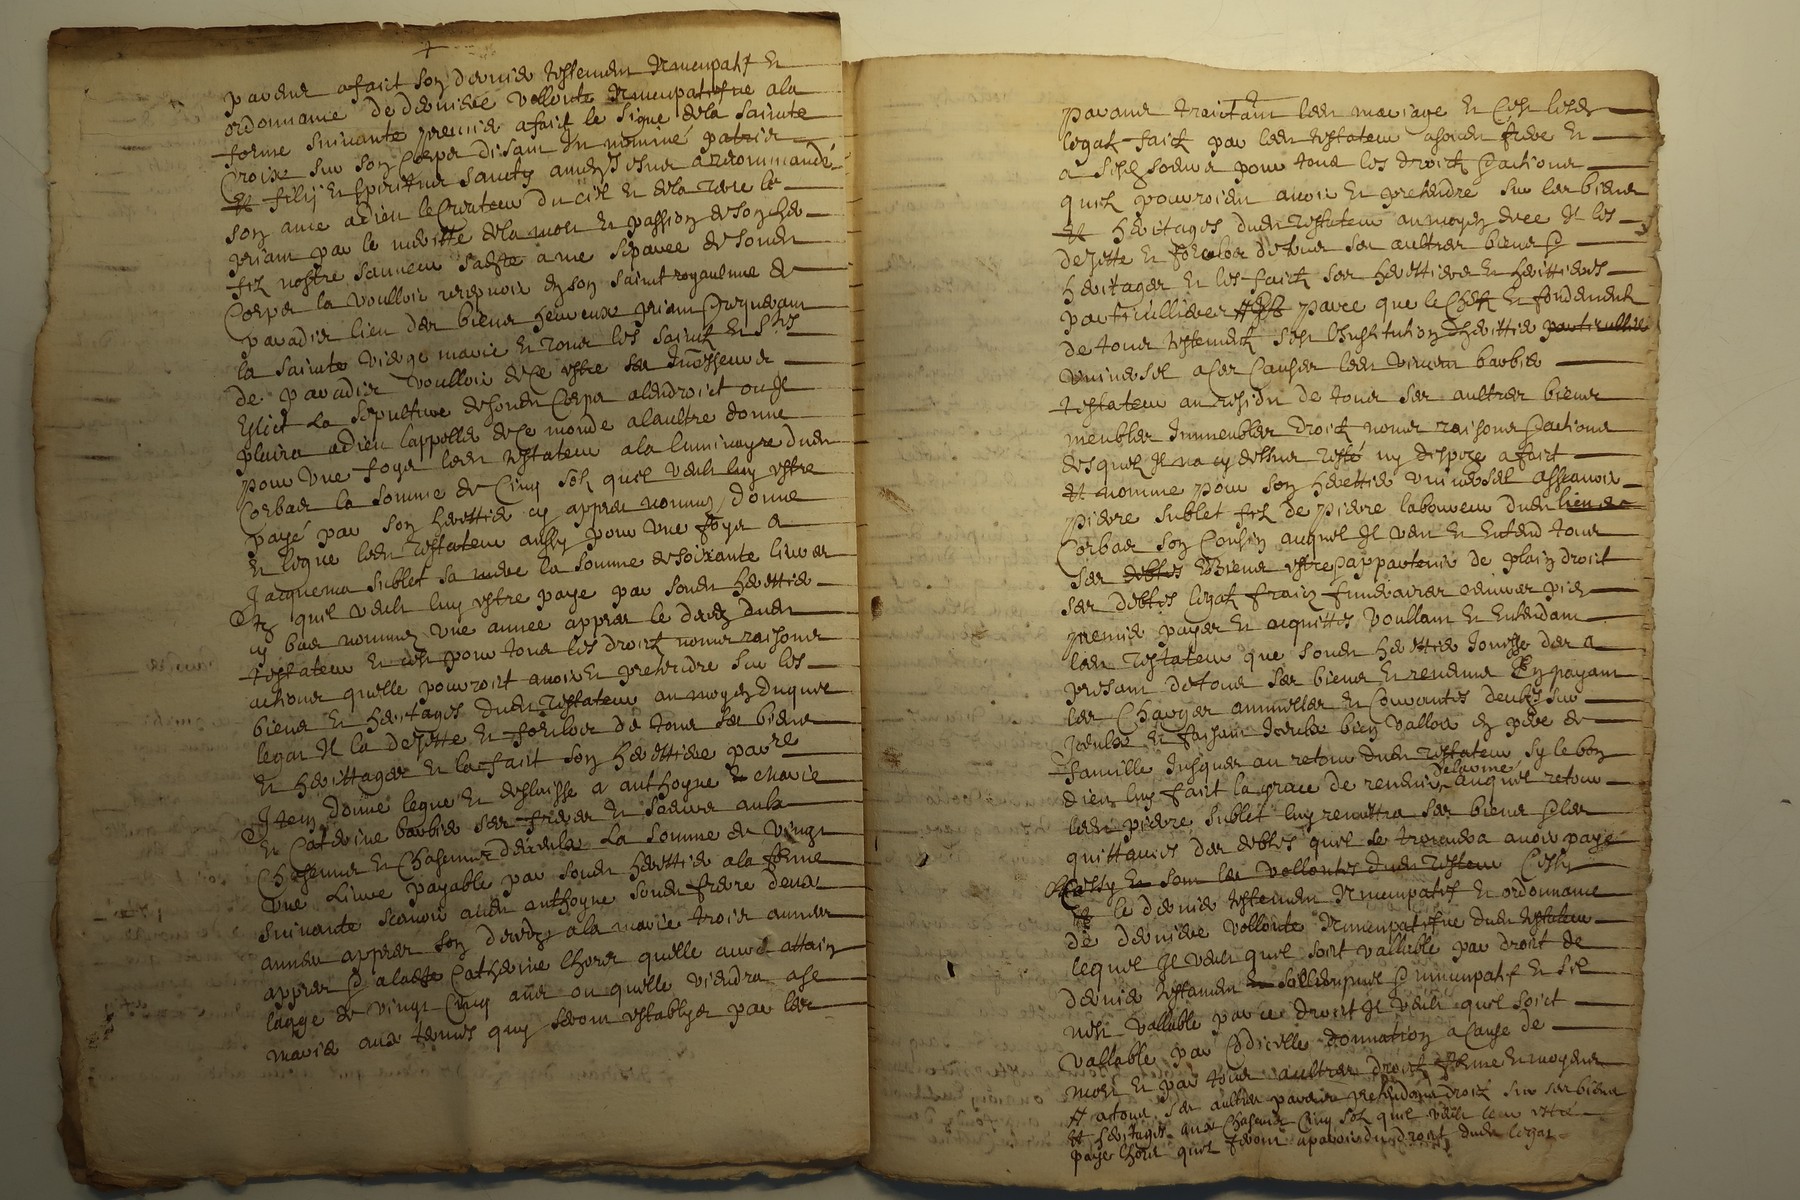 par eux a faict son dernier testement nuncupatif et
ordonnance de derniere vollonte nuncupatifve a la
forme suivante premier a faict le signe de la sainte
Croix sur son Corps disant In nominé patris
et filÿ et spiritus sancty amen Jesus a recommandé
son ame a dieu le Createur du ciel et de la terre le
priant par le meritte de la mort et passion de son cher
filz nostre sauveur sadte ame separee de sondt
Corps la voulloir recepvoir en son saint royaulme de
paradis lieu des biens heureux priant
la sainte vierge marie et tous les saintz et Stes
de paradis voulloir de ce estre ses Intersseurs
Eslict La sepulture de sondt Corps a lendroict ou Il
plaira a dieu lappelle de ce monde a laultre donne
pour une foys ledt testateur a la luminayre dudt
Corbas la somme de Cinq solz quil veult luy estre
payé par son herittier cy appres nommez donne
et legue ledt testateur aussy pour une foys a
Jacquema sublet sa mere la somme de soixante livres
tz quil veult luy estre paye par sondt herittier
cy bas nommez une annee appres le decez dudt
testateur et cest pour tous les droictz noms raisons
actions quelle pourroit avoir et pretendre sur les
biens et heritages dudt testateur au moyen duquel
legat Il la dejette et forclos de tous ses biens
et herittages et la faict son herittiere par re
Item donne legue et deslaisse a anthoyne et marie
et Catherine barbier ses freres et soeurs aux
Chascuns et Chascune deux La somme de vingt
une Livre payable par sondt herittier a la forme
suivante scavoir audt anthoyne sondt frere deux
annees appres son decedz a la marie trois annees
appres a ladte Catherine lhors quelle aura attain
laage de vingt Cinq ans ou quelle viendra a se
marier aux termes quy seront establys par les
parans traictant ledt mariage et Cest lesdz
legatz faictz par ledt testateur a sondt frere et
a sesdz soeurs pour tous les droictz actions
quilz pourroient avoir et pretendre sur les biens
et heritages dudt testateur au moyen de ce Il les
dejette et forclos de tous ses aultres biens
heritages et les faict ses herittiers et herittieres
particulliers parce que le Chefz et fondement
de tous testementz sest Linstitution dherittier particullier
universel a ces Causes ledt vincent barbier
testateur au residu de tous ses aultres biens
meubles Immeubles droictz noms raisons actions
desquelz Il na cy dessus testé ny dispoze a faict
et nomme pour son herittier universel asscavoir
pierre sublet filz de pierre laboureur dudt lieu de
Corbas son Cousin auquel Il veut et entend tous
ses debtes biens estre appartenir de plain droict
ses debtes legatz fraiz funeraires
premier payes et acquittes voullant et Entendant
ledt testateur que sondt herittier Jouisse des a
presant de tous ses biens et revenus En payant
les Charges annuelles et Courantes deubes sur
Iceulx et faisant Iceulx bien valloir en pere de
famille Jusques au retour dudt testateur sy le bon
dieu luy faict la grace de revenir de larmé auquel retour
ledt pierre sublet luy remettra ses biens les
quittances des debtes quil se trouvera avoir payé
Car ainsy sont les vollontes dudt testateur Cestuy
le dernier testement nuncupatif et ordonnance
de derniere vollonte nuncupatifve dudt testateur
lequel Il veult quil soict vallable par droit de
dernier testament nuncupatif et sil
nest vallable par ce droict Il veult quil soict
vallable par Codicille donnation a Cause de
mort et par tous aultres droictz forme et moyens
et a tous ses aultres parans pretendant droictz sur ses biens
et heritages aux Chascuns Cinq solz quil veult leur estre
payes lhors quilz feront aparoir du droict dudt legat